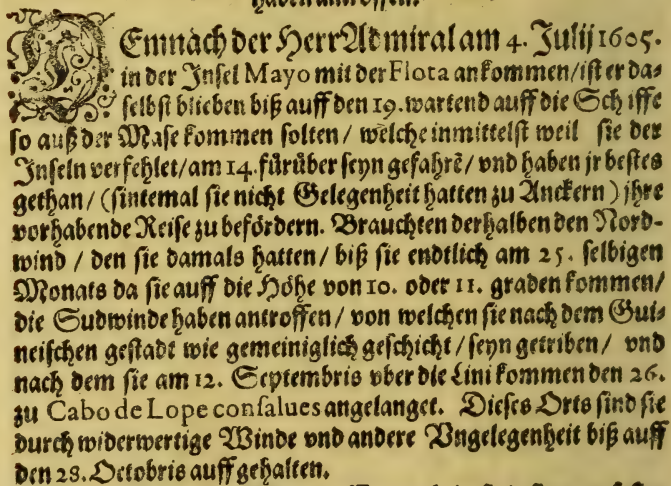 DEmnach der Herr Admiral am 4. Julij 1605.
in der Insel Mayo mit der Flota ankommen/ ist er da⸗
selbst blieben biß auff den 19. wartend auff die Schiffe
so auß der Mase kommen solten / welche inmittelst weil sie der
Inseln verfehlet/ am 14. fürüber seyn gefahrē/ vnd haben jr bestes
gethan/ (sintemal sie nicht Gelegenheit hatten zu Anckern) jhre
vorhabende Reise zu befördern. Brauchten derhalben den Nord⸗
wind / den sie damals hatten/ biß sie endtlich am 25. selbigen
Monats da sie auff die Höhe von 10. oder 11. graden kommen/
die Sudwinde haben antroffen/ von welchen sie nach dem Gui⸗
neischen gestadt wie gemeiniglich geschicht / seyn getriben/ vnd
nach dem sie am 12. Septembris vber die Lini kommen den 26.
zu Cabo de Lope consalues angelanget. Dieses Orts sind sie
durch widerwertige Winde vnd andere Vngelegenheit biß auff
den 28. Octobris auffgehalten.